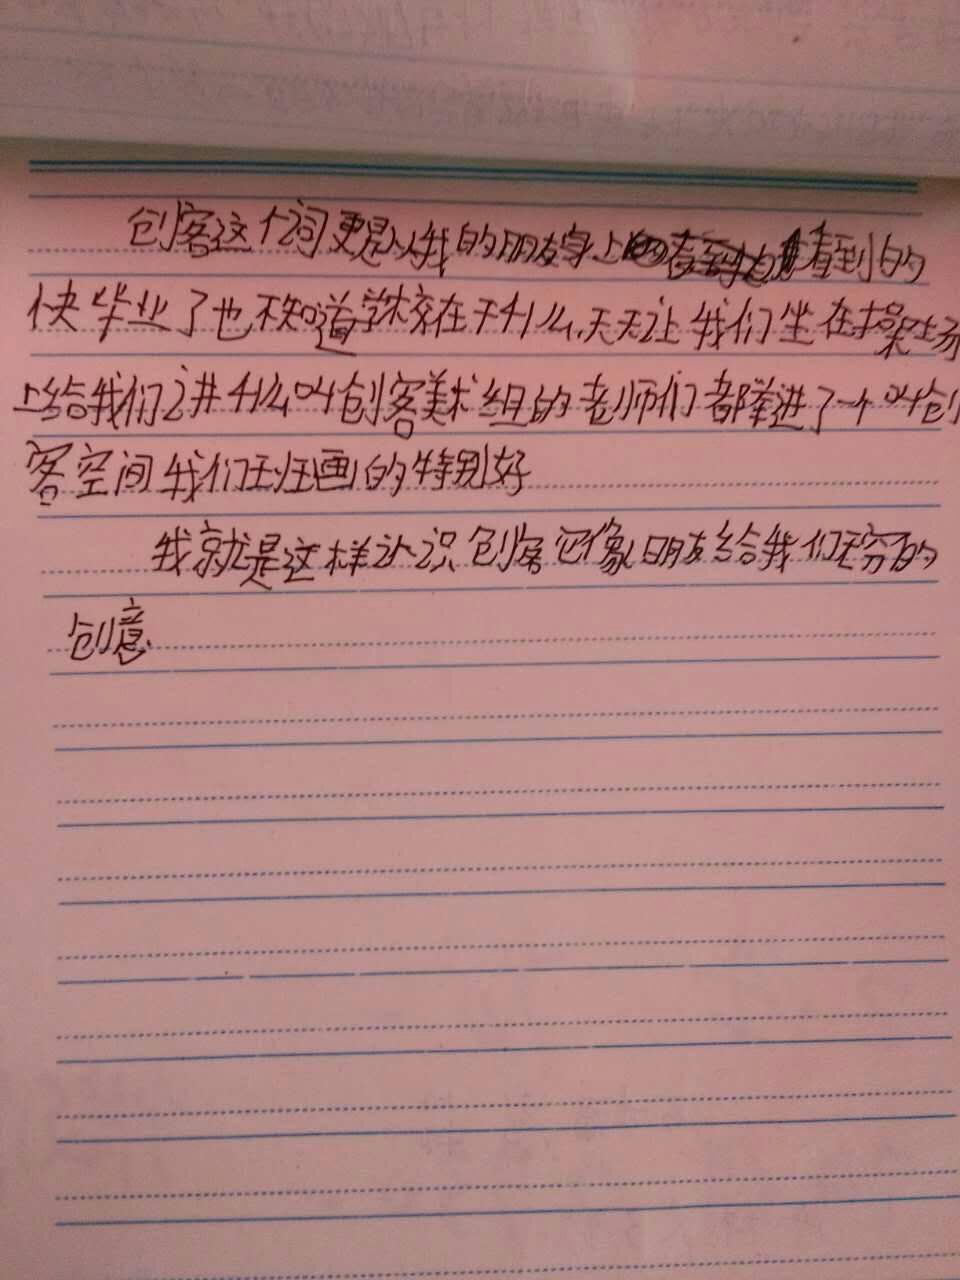 创客这个词更是从我的朋友身上看到的
快毕业了也不知道学校在干什么,天天让我们坐在操场
上给我们讲什么叫创客美术组的老师们都举进了一个叫创
客空间我们班画的特别好
我就是这样认识创客它像朋友给我们无穷的
创意.